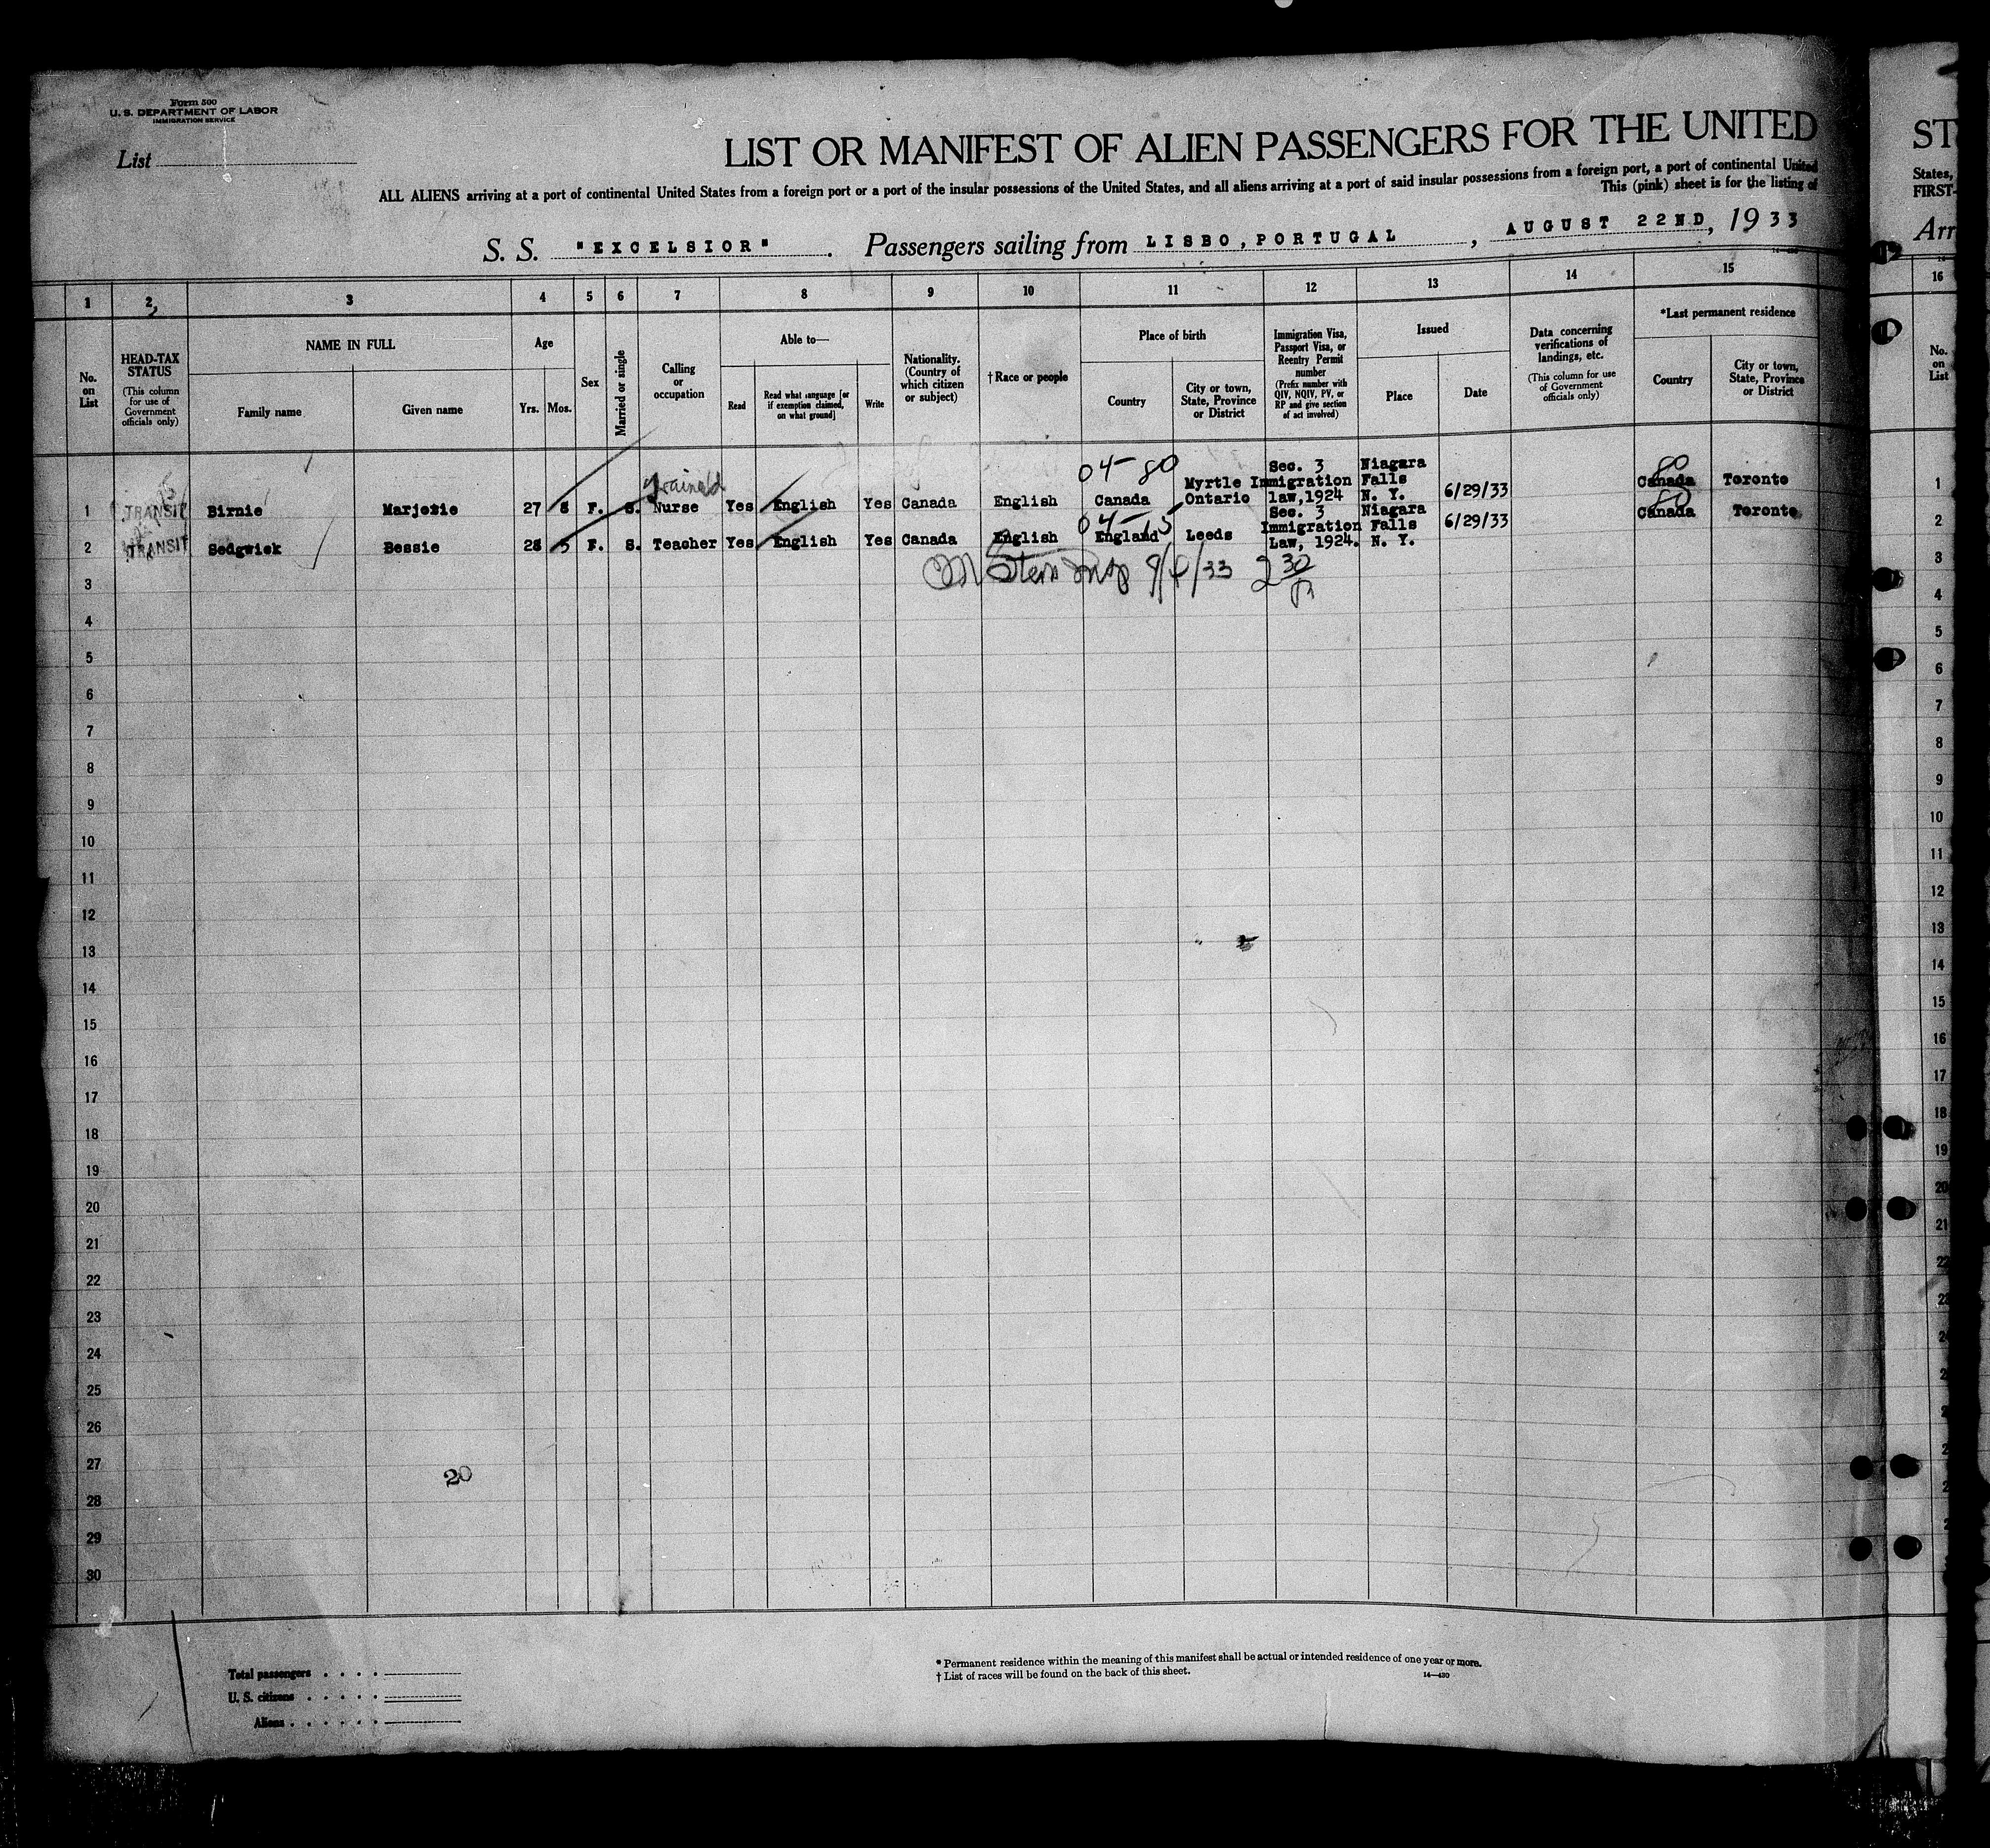 Form 500
U. S. DEPARTMENT OF LABOR
IMMIGRATION SERVICE
List
LIST OR MANIFEST OF ALIEN PASSENGERS FOR THE UNITED
ALL ALIENS arriving at a port of continental United States from a foreign port or a port of the insular possessions of the United States, and all aliens arriving at a port of said insular possessions from a foreign port, a port of continental United
This (pink) sheet is for the listing of
S. S. "EXCELSIOR". Passengers sailing from LISBO, PORTUGAL, AUGUST 22ND, 1933
ST
States,
FIRST-
Arr
1 2 3 4 5 6 7 8 9 10 11 12 13 14 15 16
No. on List
HEAD-TAX STATUS
(This column for use of Government officials only)
NAME IN FULL
Family name
Given name
Age
Yrs.
Mos.
Sex
Married or single
Calling or occupation
Able to—
Read
Read what language [or if exemption claimed, on what ground]
Write
Nationality. (Country of which citizen or subject)
† Race or people
Place of birth
Country
City or town, State, Province or District
Immigration Visa, Passport Visa, or Reentry Permit number
(Prefix number with QIV, NQIV, PV, or RP and give section of act involved)
Issued
Place
Date
Data concerning verifications of landings, etc.
(This column for use of Government officials only)
*Last permanent residence
Country
City or town, State, Province or District
No. on List
1 TRANSIT Birnie Marjorie 27 8 F. S. Trained Nurse Yes English Yes Canada English 04-80 Canada Myrtle Ontario Sec. 3 Immigration law, 1924 Niagara Falls N. Y. 6/29/33 80 Canada Toronto 1
2 TRANSIT Sedgwick Bessie 28 5 F. S. Teacher Yes English Yes Canada English 04-15 England Leeds Sec. 3 Immigration Law, 1924. Niagara Falls N. Y. 6/29/33 80 Canada Toronto 2
Stern Insp 33 2 30
3 3
4 4
5 5
6 6
7 7
8 8
9 9
10 10
11 11
12 12
13 13
14 14
15 15
16 16
17 17
18 18
19 19
20 20
21 21
22 22
23
24
25
26
27
20
28
29
30
Total passengers
U. S. citizens
Aliens
* Permanent residence within the meaning of this manifest shall be actual or intended residence of one year or more.
† List of races will be found on the back of this sheet.
14—430